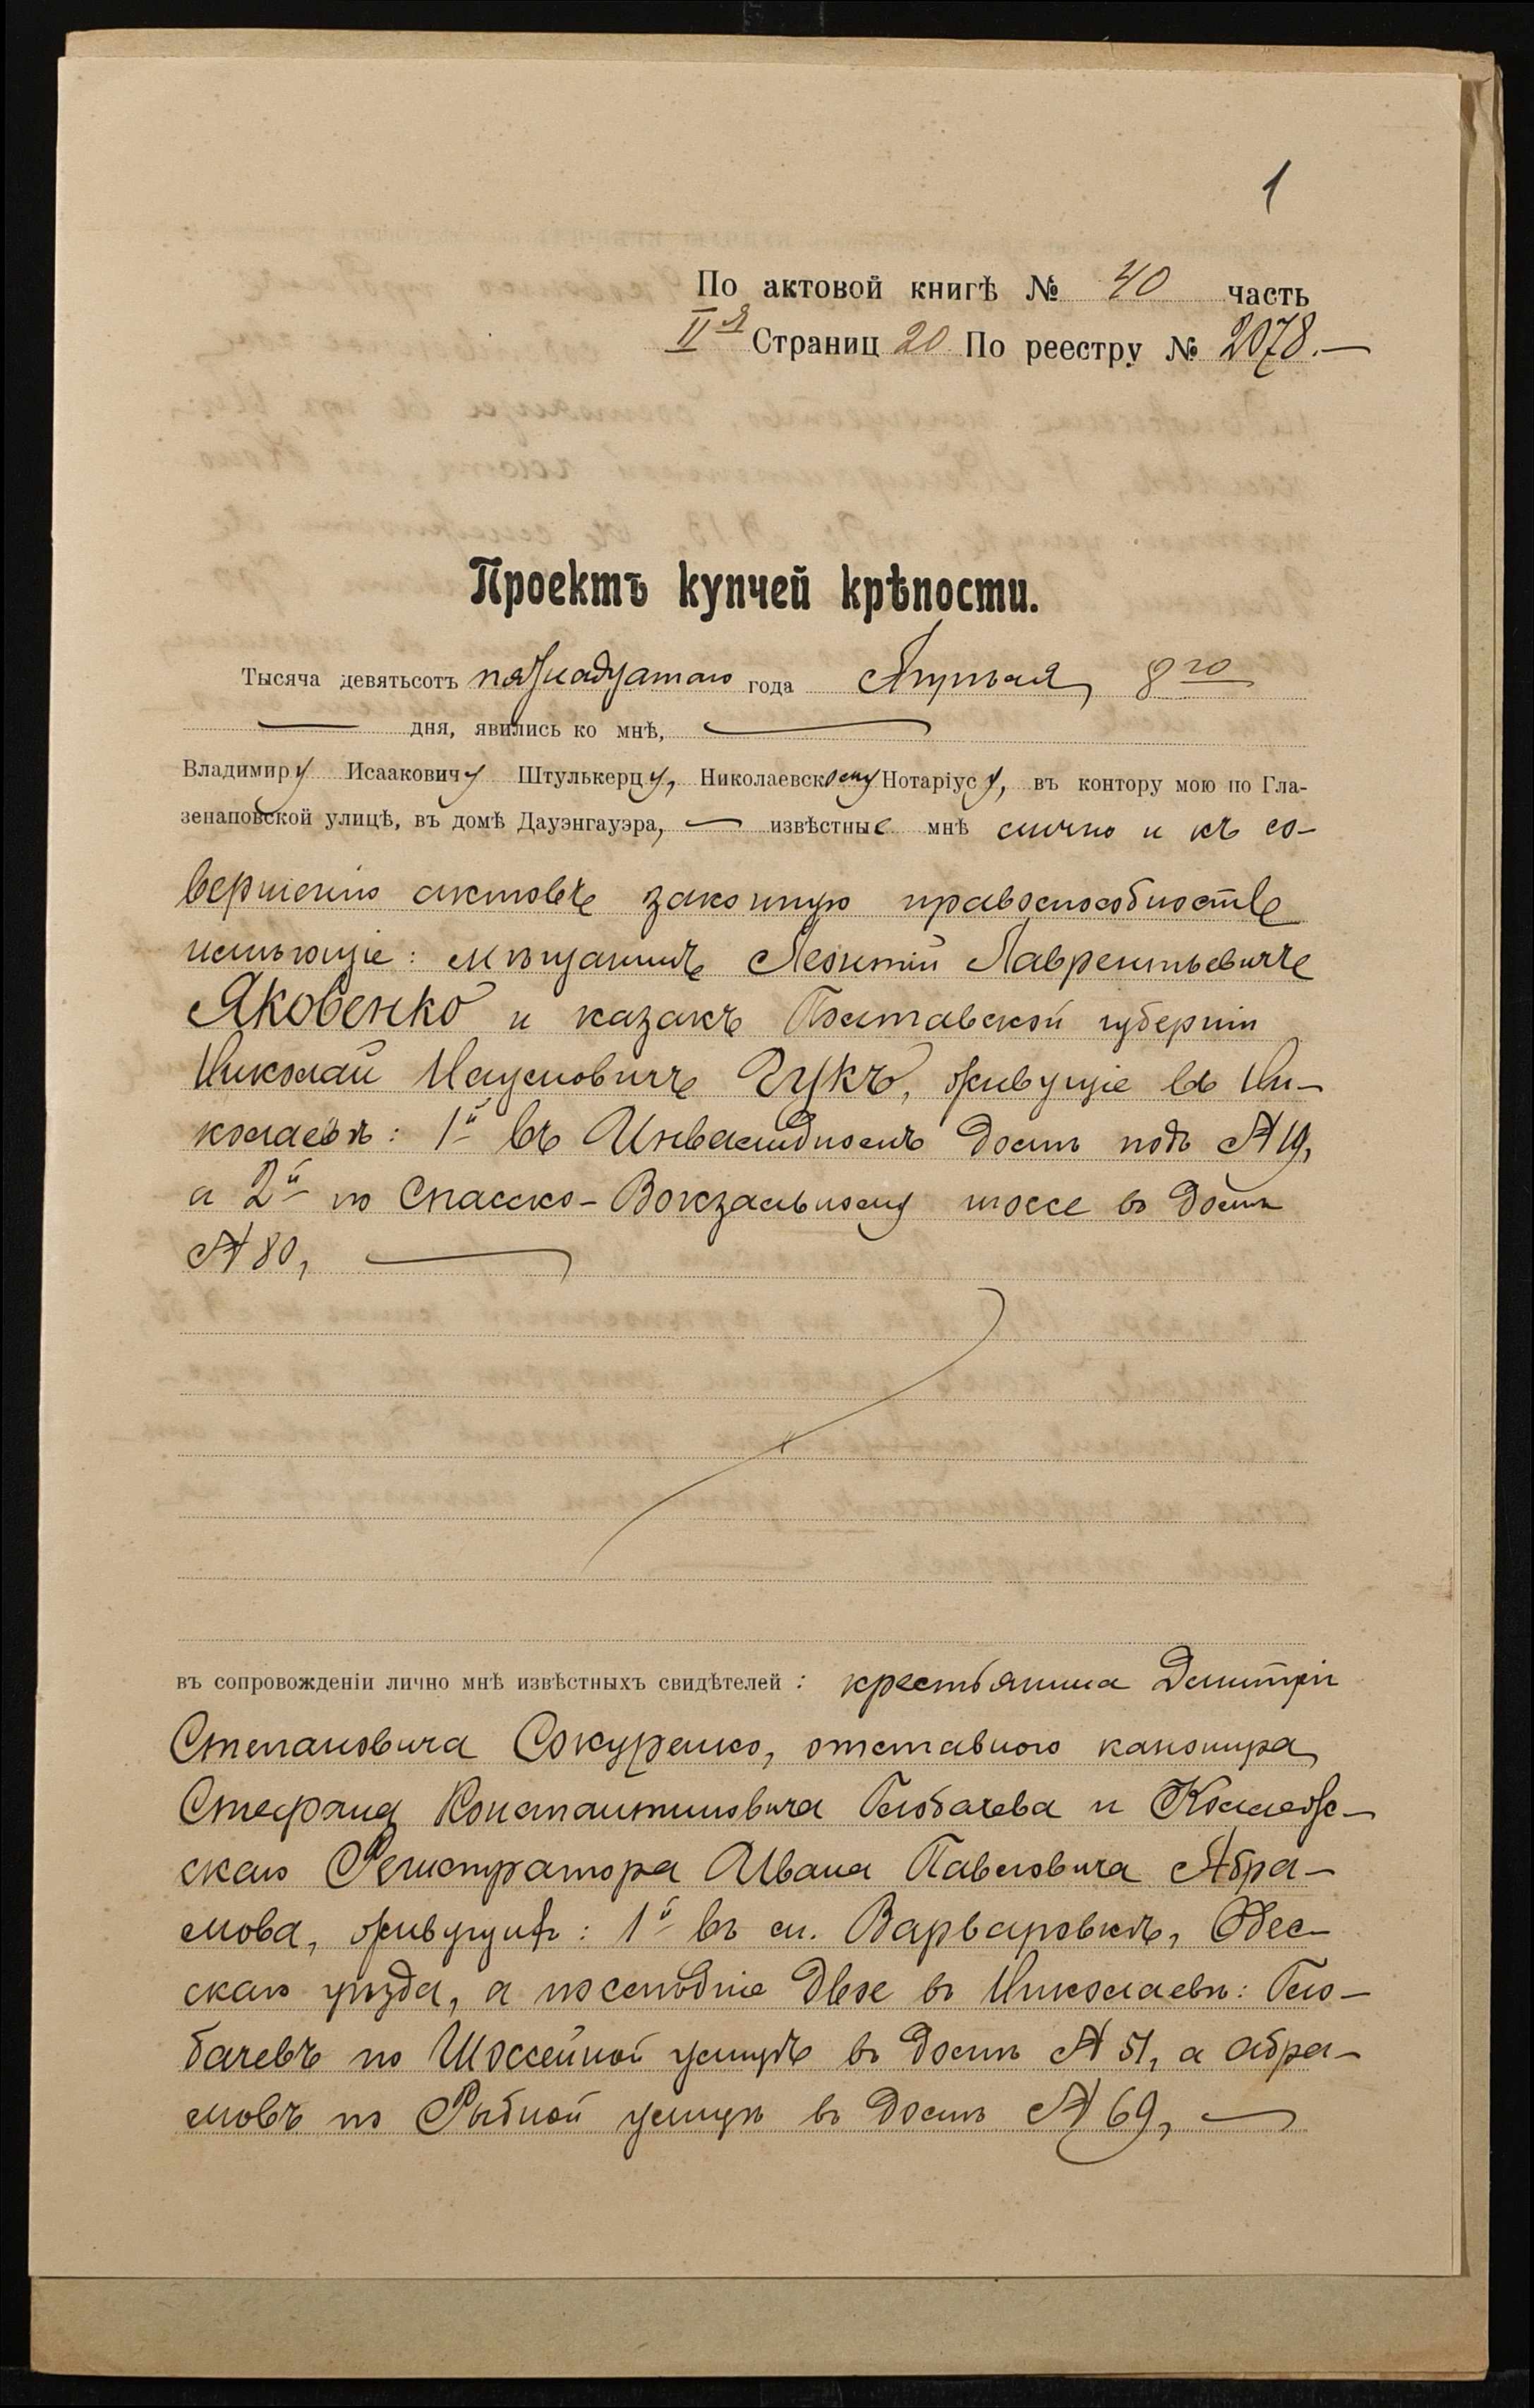 1
По актовой книгѣ № 40 часть
II я Страниц 20 По реестру № 2078.—
Проектъ купчей крѣпости.
Тысяча девятьсотъ пятнадцатаго года Апрѣля 8го
дня, явились ко мнѣ,
Владимиру Исааковичу Штулькерцу, Николаевскому Нотаріусу, въ контору мою по Гла-
зенаповской улицѣ, въ домѣ Дауэнгауэра, извѣстные мнѣ лично и къ со-
вершенію актовъ законную правоспособность
имѣющіе: мѣщанинъ Леонтій Лаврентьевичъ
Яковенко и казакъ Полтавской губерніи
Николай Наумовичъ Гукъ, живущіе въ Ни-
колаевѣ: 1й въ Инвалидномъ домѣ подъ № 19,
а 2й по Спасско-Вокзальному шоссе въ домѣ
№ 80,
въ сопровожденіи лично мнѣ извѣстныхъ свидѣтелей: крестьянина Димитрія
Степановича Сокуренко, отставного канонира
Стефана Константиновича Глобачева и Коллеж-
скаго Регистратора Ивана Павловича Абра-
мова, живущихъ: 1й въ м. Варваровкѣ, Одес-
скаго уѣзда, а послѣдніе двое въ Николаевѣ: Гло-
бачевъ по Шоссейной улицѣ въ домѣ № 51, а Абра-
мовъ по Рыбной улицѣ въ домѣ № 69,